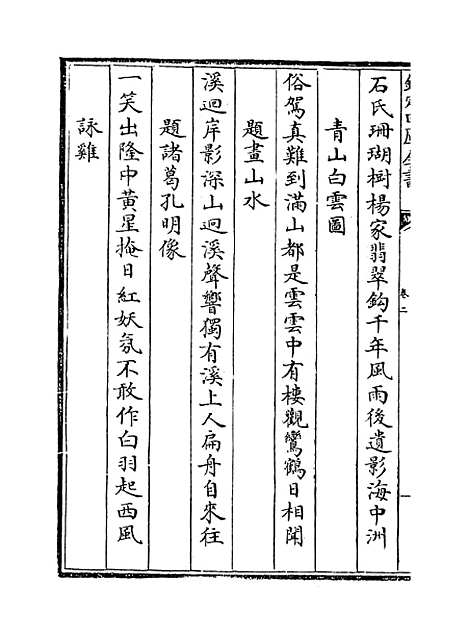 欽定四庫全書
卷二
石氏珊瑚樹楊家翡翠鈎千年風雨後遺影海中洲
青山白雲圖
俗駕真難到滿山都是雲雲中有樓觀鸞鶴日相聞
題畫山水
溪迴岸影深山迴溪聲響獨有溪上人扁舟自來往
題諸葛孔明像
一笑出隆中黃星掩日紅妖氛不敢作白羽起西風
詠雞